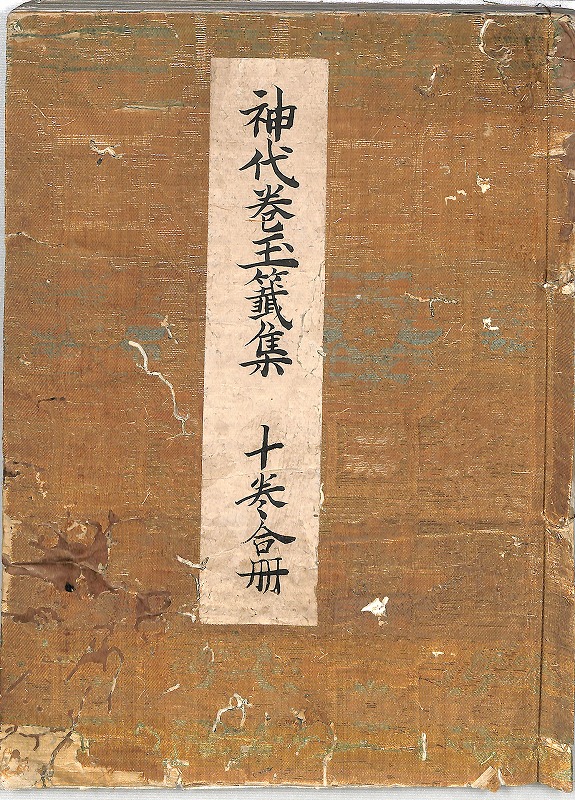 神代巻玉籤集　十巻合冊